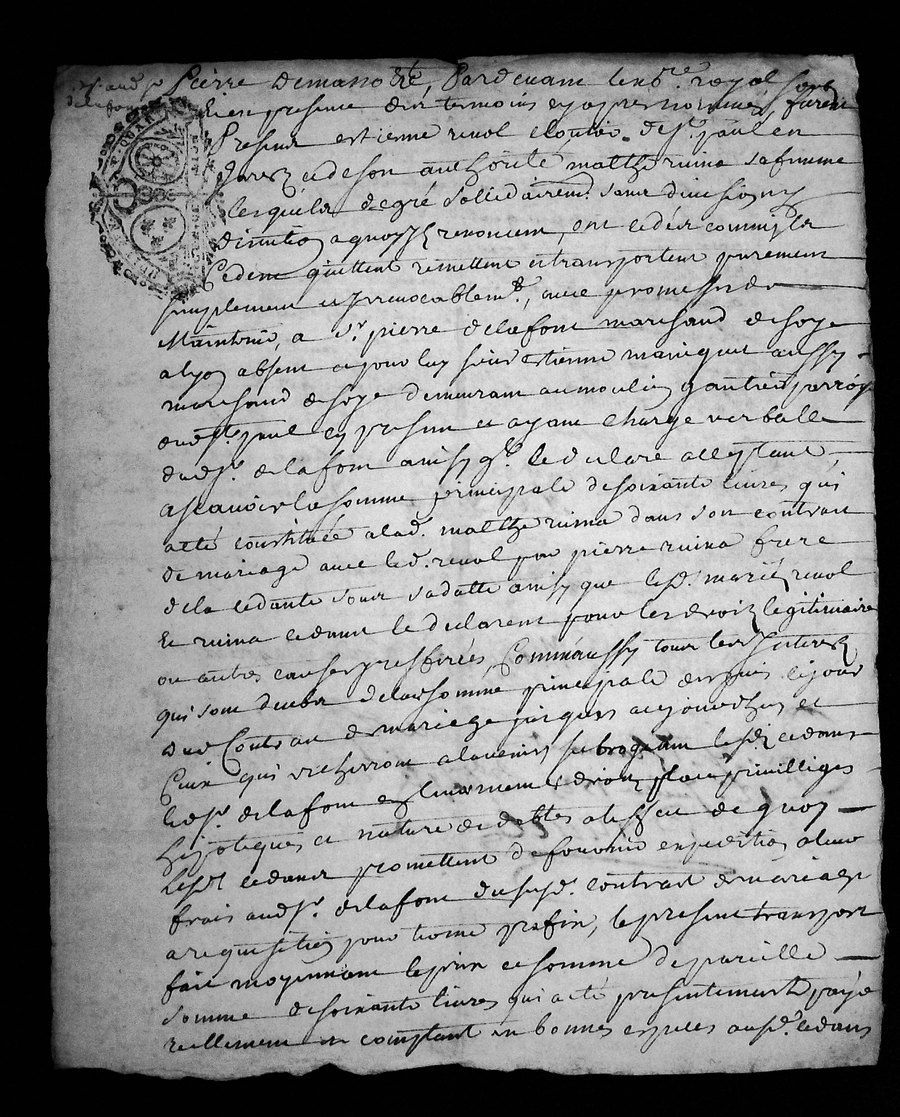 Pierre Demano Pardevant le no.re royal sous.
Et en presence des temoins cy apres nommés, furent
Presens estienne revol de St. paul en
Jarez et de son authorité matthe ruina sa femme
lesquels de gré sollidairem.t sans division ny
discution a quoy ils renoncent, ont cedé et comm'ils
Cedent quittent remettent et transportent purement
simplement et Irrevocablem.t, avec promesse de
Maintenir, a Sr. pierre delafont marchand de soye
a lyon absent et pour luy sieur estienne maniquet aussy
marchand de soye demeurant au moulin gautier parroisse
dud. St. paul cy present et ayant charge verballe
dud. Sr. delafont ainsy q.l le declare acceptant,
a scavoir la somme principale de soixante livres qui
a eté constituée a lad. matthe ruina dans son contrait
de mariage avec led. revol par pierre ruina frere
de la cedante sous sa datte ainsy que lesd. mariez revol
et ruina cedants le declarent pour les droits legitimaire
ou autres causes y exprimées, Comm'aussy tous les Interets
qui sont deubs de lad. somme principale depuis le jour
dud. Contrait de mariage jusques aujourdhuy et
Ceux qui echerront a l'avenir, subrogeant lesd. cedants
led. Sr. delafont en leurs noms droits place privilleges
hypoteques et nature de debtes a l'effet de quoy
lesd. cedants promettent de fournir expedition a leur
frais aud. Sr. delafont du susd. contrait de mariage
a requisition pour tiome prefix, le present transport
fait moyennant le prix et somme de pareille
somme de soixante livres qui a eté presentement payé
reellement et comptant en bonnes especes ausd. cedans